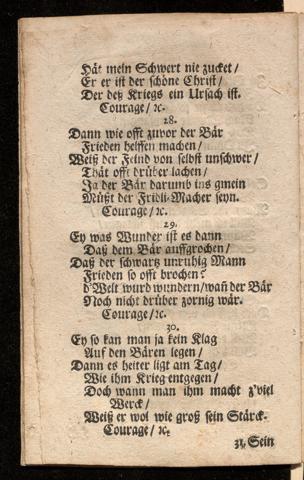 Hät mein Schwert nie zucket/
Er er ist der schöne Christ/
Der deß Kriegs ein Ursach ist.
Courage/ ꝛc.
28.
Dann wie offt zuvor der Bär
Frieden helffen machen/
Weiß der Feind von selbst unschwer/
Thät offt drüber lachen/
Ja der Bär darumb ins gmein
Müßt der Fridli-Macher seyn.
Courage/ ꝛc.
29.
Ey was Wunder ist es dann
Daß dem Bär auffgrochen/
Daß der schwartz unruhig Mann
Frieden so offt brochen?
d'Welt wurd wundern/wañ der Bär
Noch nicht drüber zornig wär.
Courage/ ꝛc.
30.
Ey so kan man ja kein Klag
Auf den Bären legen/
Dann es heiter ligt am Tag/
Wie ihm Krieg entgegen/
Doch wann man ihm macht z'viel
Werck/
Weißt er wol wie groß sein Stärck.
Courage/ ꝛc.
31. Sein